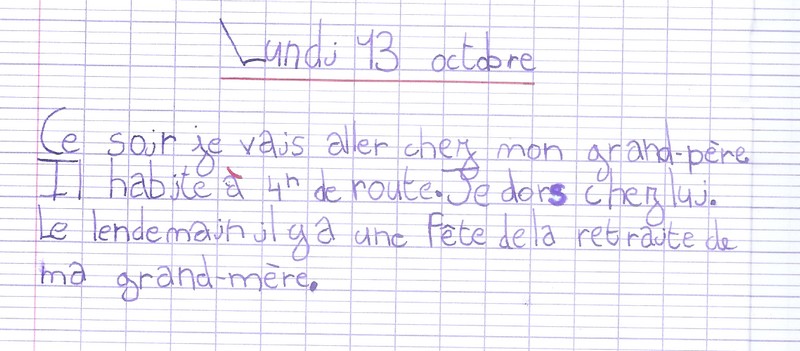 Lundi 13 octobre
Ce soir je vais aller chez mon grand-père
Il habite à 4h de route. Je dors chez lui.
Le lendemain il y a une fête de la retraite de
ma grand-mère.